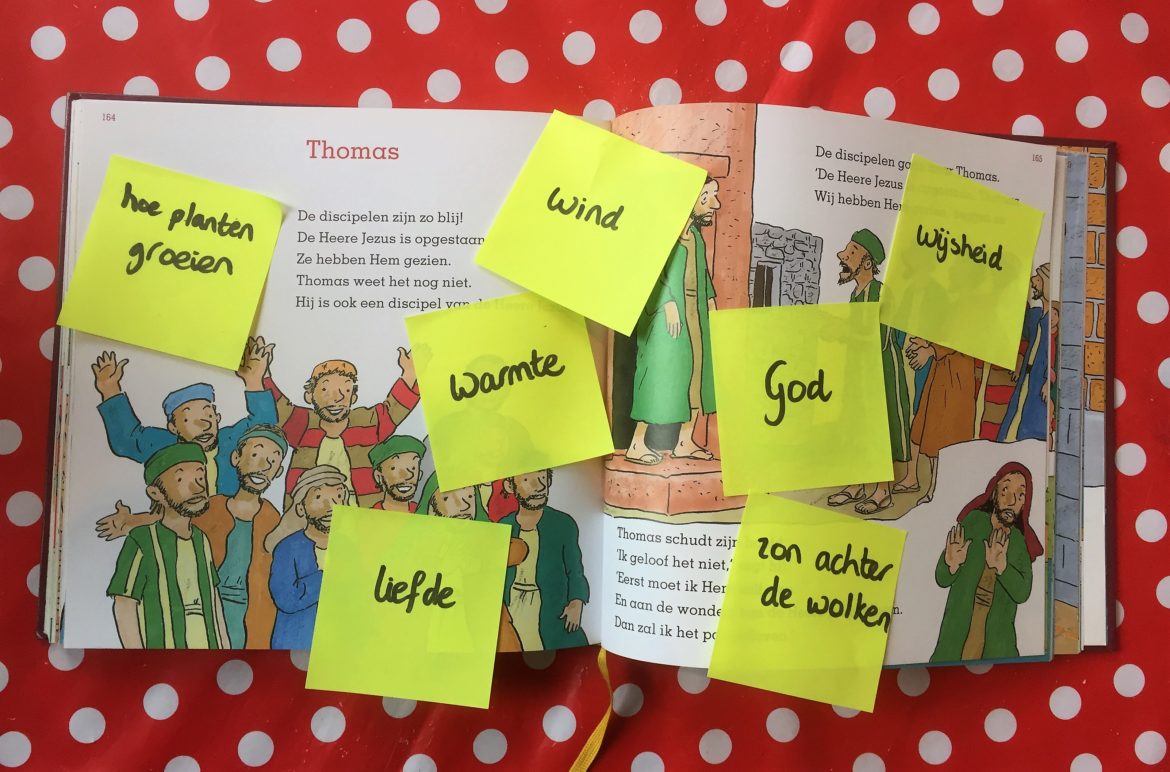 164
Thomas
hoe planten
groeien
De discipelen zijn zo blij!
De Heere Jezus is opgestaan
Ze hebben Hem gezien.
Thomas weet het nog niet.
Hij is ook een discipel van de
wind
warmte
liefde
165
De discipelen Thomas.
'De Heere Jezus
Wij hebben
wijsheid
God
Thomas schudt zijn
'Ik geloof het niet,'
'Eerst moet ik
En aan de
Dan zal ik het
zon achter
de wolken